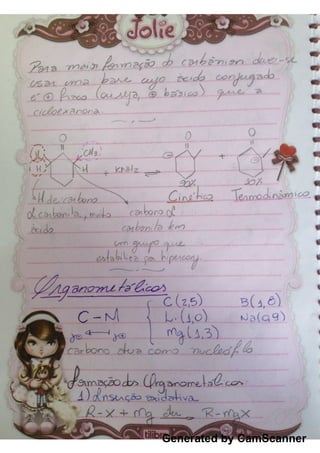 Jolie
Para maior formação do carbânion deve-se
usar uma base cujo ácido conjugado
é ⊕ fraco (ou seja, ⊕ básico) que a
cicloexanona
O O O
H CH3
H H + KNH2 ⇌ ⊖ + ⊖
50%
*H de carbono Cinético Termodinâmico
α carbonila, muito carbono α
ácido carbonila tem
um grupo que
estabiliza por hiperconj.
Organometálicos
C (2,5) B (1,8)
C - M Li (1,0) Na (0,9)
Mg (1,3)
carbono atua como nucleófilo
Formação dos Organometálicos
1) Inserção oxidativa
R-X + Mg R-MgX
tilibra
Generated by CamScanner